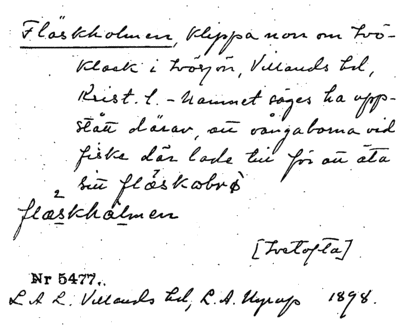 Fläskholmen, klippa norr om Ivö-
klack i Ivösjön, Villands hd,
Krist. l. - Namnet säges ha upp-
stått därav, att vångaborna vid
fiske där lade till för att äta
sitt fläskobrö
2
flæskhålmen
[Ivetofta]
Nr 5477.
L A L. Villands hd, L. A. Nyrup 1898.